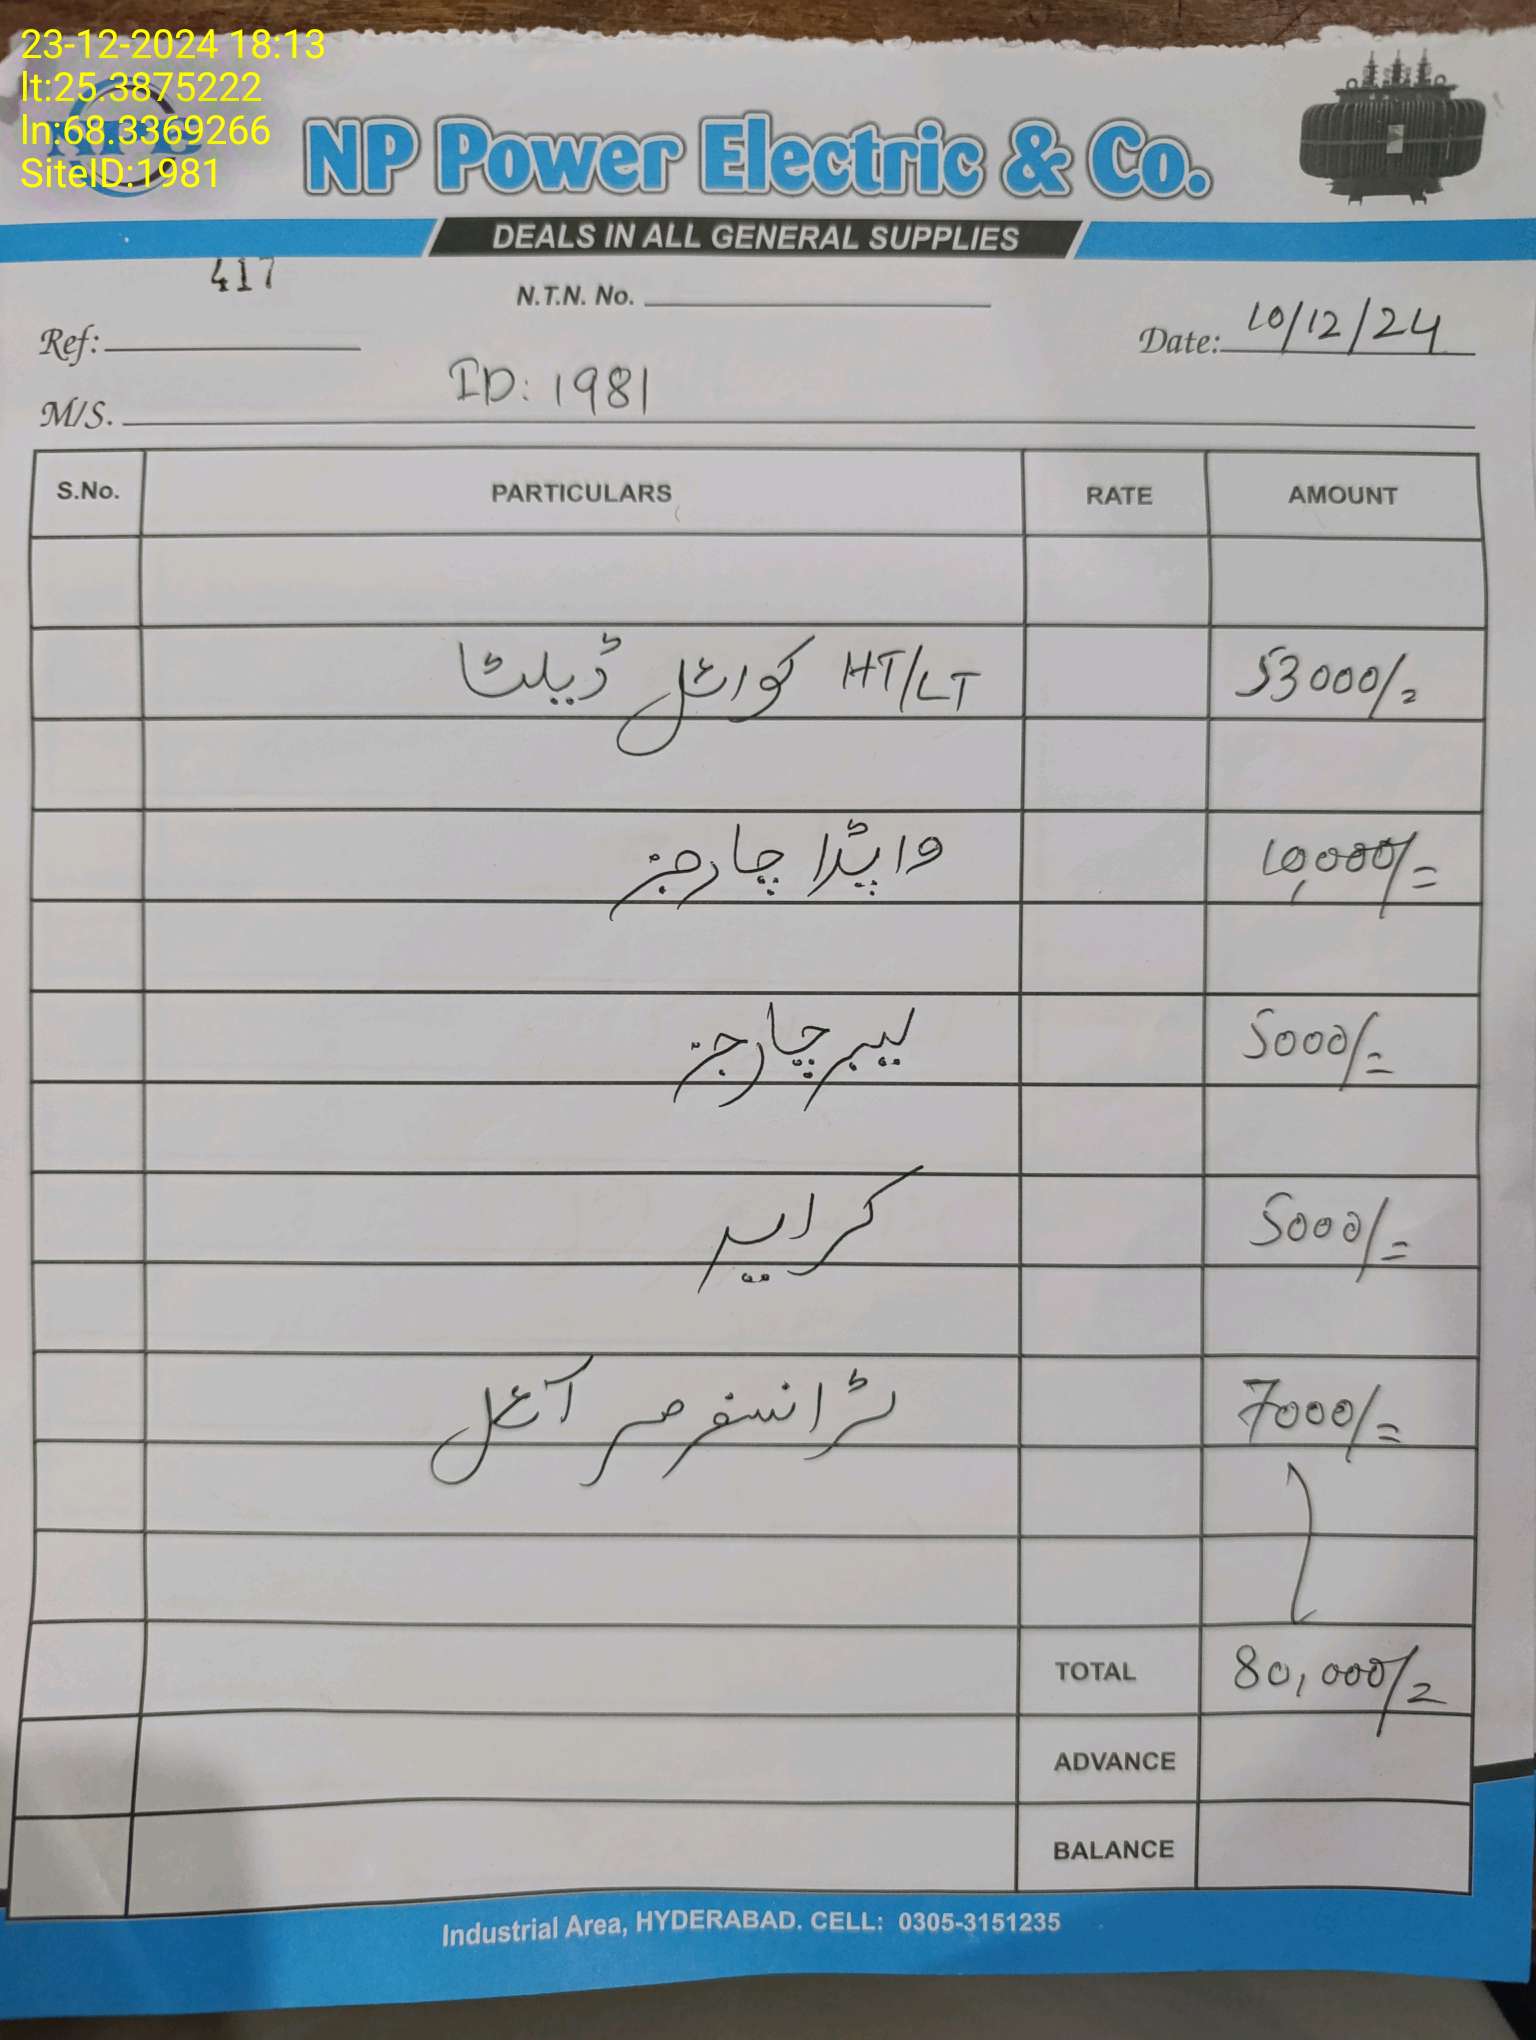 23-12-2024 18:13
lt:25.3875222
ln:68.3369266
SiteID:1981
NP Power Electric & Co.
DEALS IN ALL GENERAL SUPPLIES
417
N.T.N. No.
Ref:
Date: 10/12/24
M/S. ID: 1981
S.No. PARTICULARS RATE AMOUNT
HT/LT کوائل ڈیلٹا 53000/=
واپڈا چارجز 10,000/=
لیبر چارجز 5000/=
کرایہ 5000/=
ٹرانسفرمر آئل 7000/=
TOTAL 80,000/=
ADVANCE
BALANCE
Industrial Area, HYDERABAD. CELL: 0305-3151235